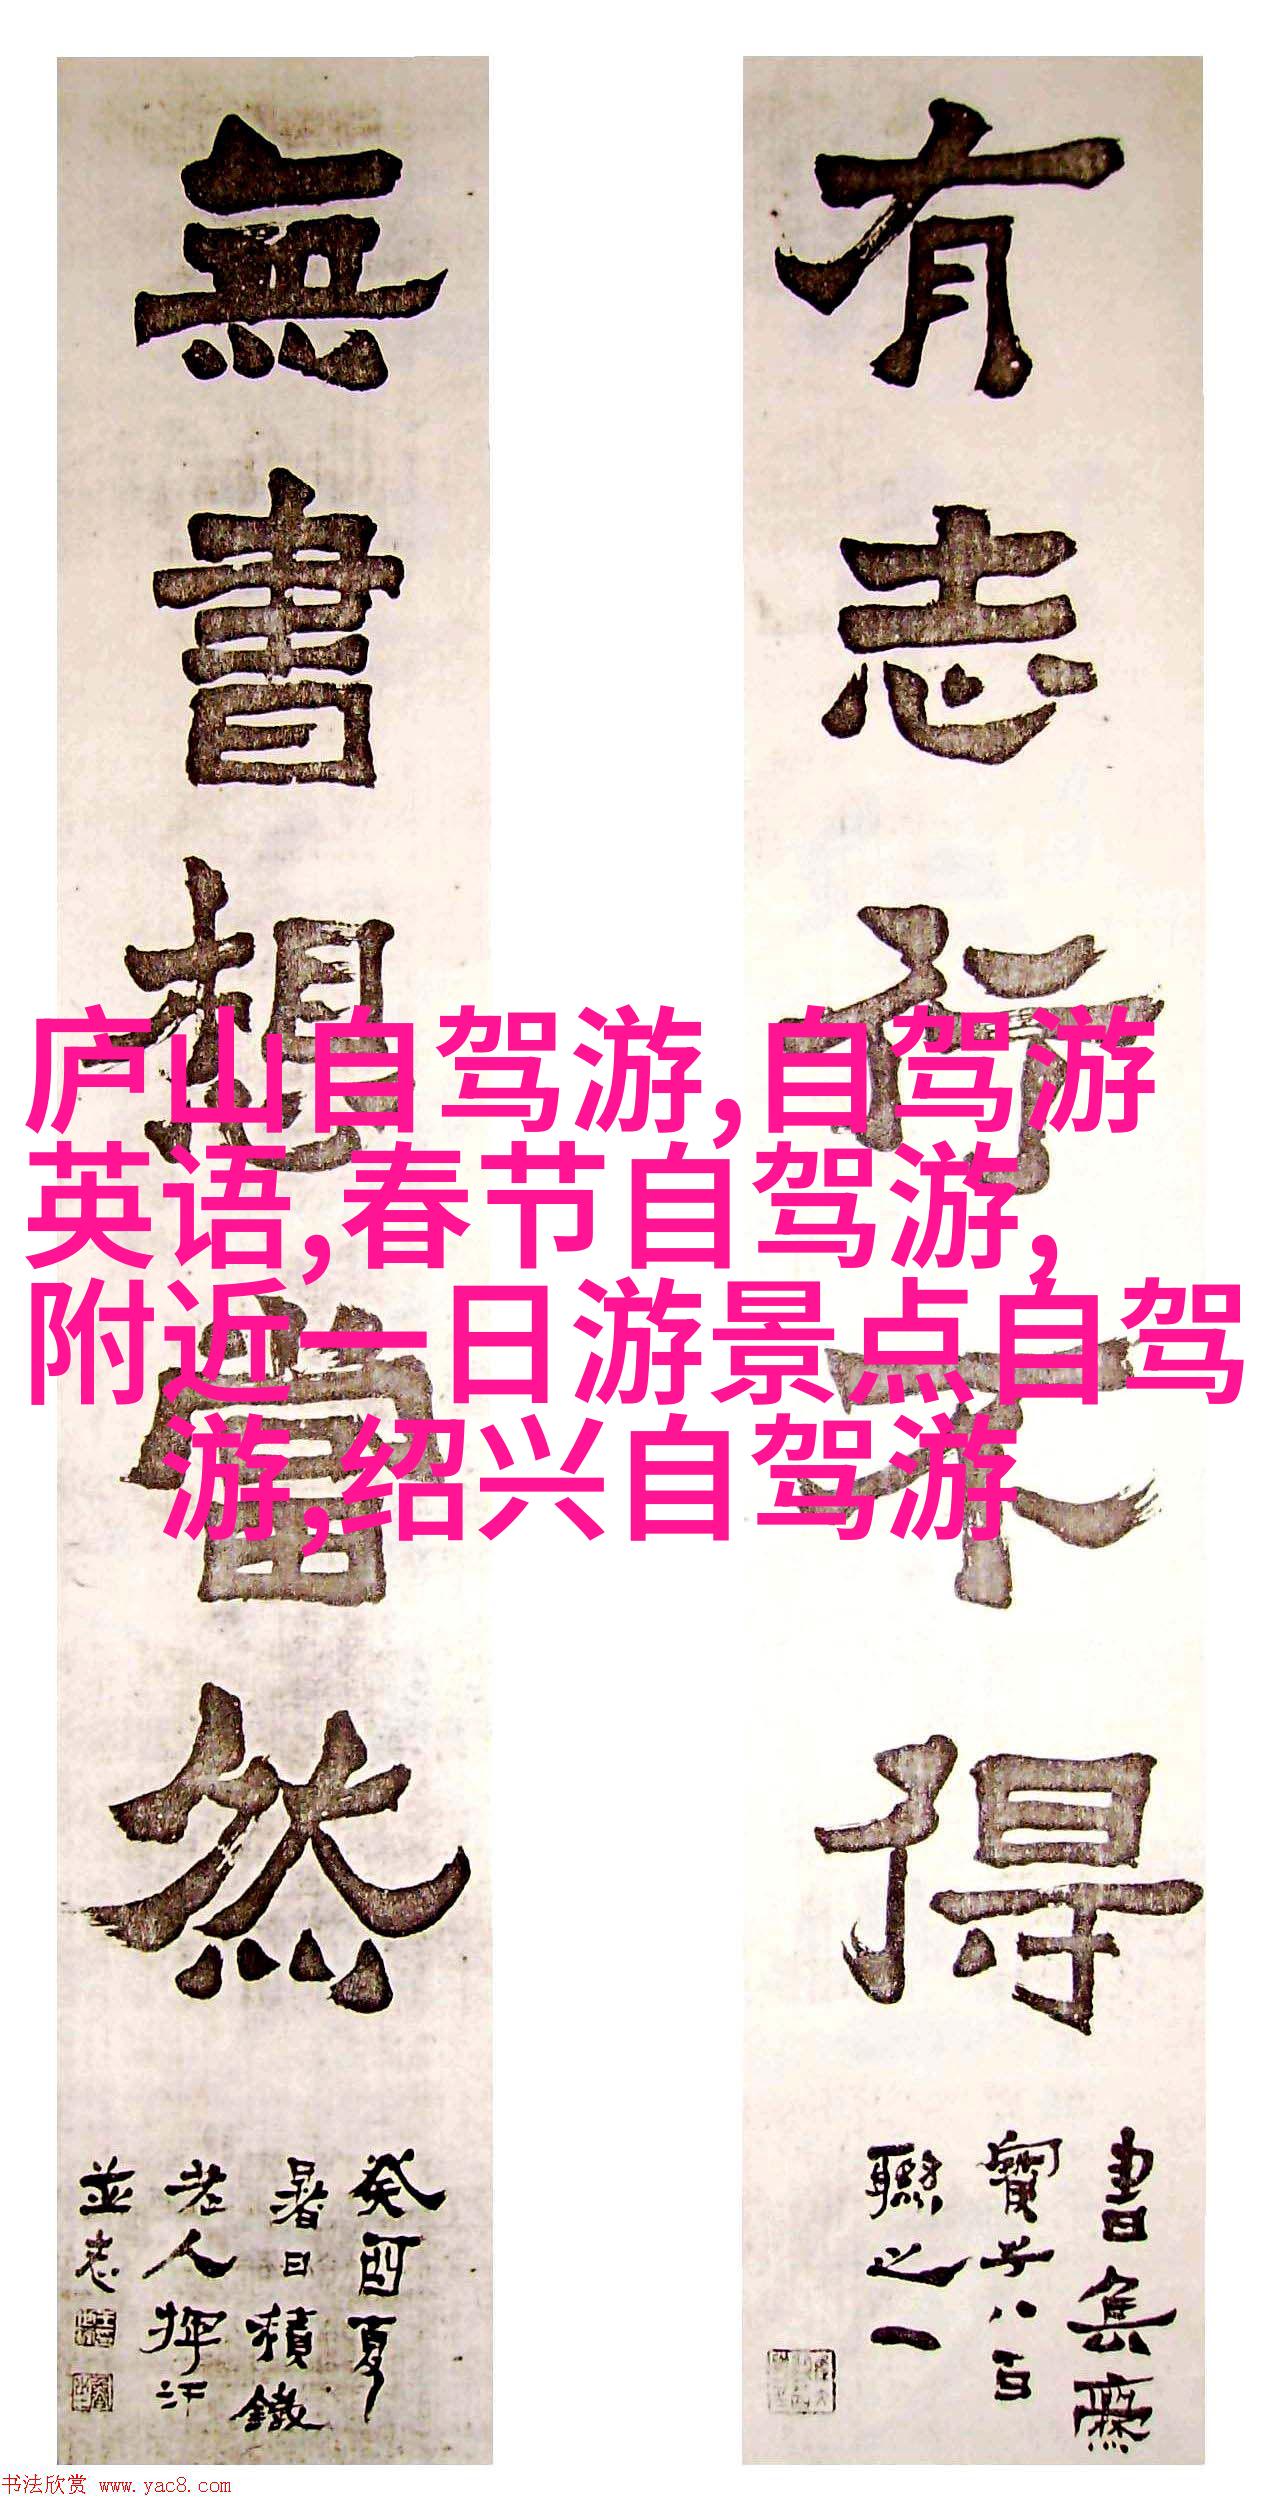 有志行不得
書集爨
寶子八百
聯之一
無書想當然
癸酉夏
暑日積鐵
老人揮汗
並志
庐山自驾游,自驾游
英语,春节自驾游,
附近一日游景点自驾
游,绍兴自驾游
书法欣赏 www.yac8.com